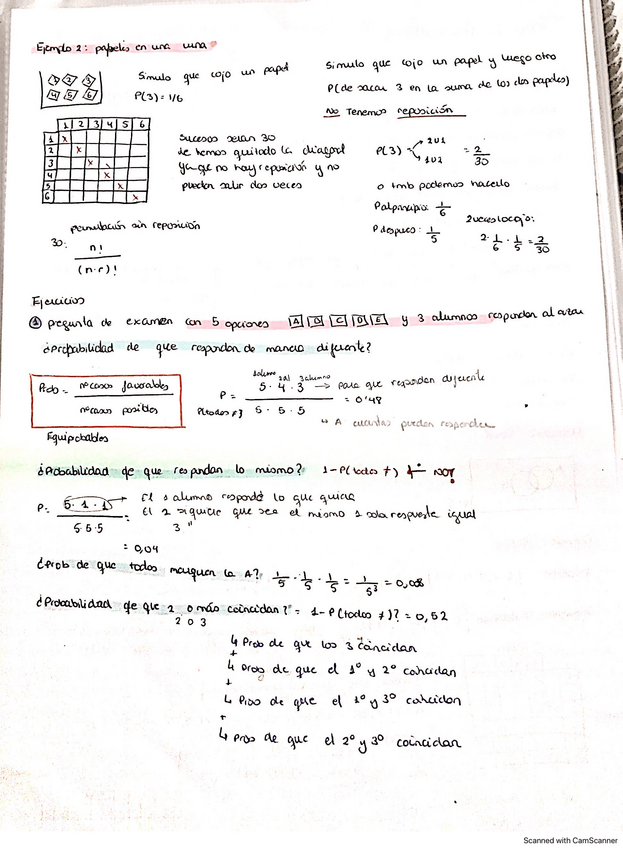 Ejemplo 2: papeles en una urna
1 2 3
4 5 6
Simulo que cojo un papel
P(3) = 1/6
1 2 3 4 5 6
1 x
2 x
3 x
4 x
5 x
6 x
Sucesos serían 30
de hemos quitado la diagonal
ya que no hay reposición y no
pueden salir dos veces
permutación sin reposición
30: n!
(n-r)!
Simulo que cojo un papel y luego otro
P(de sacar 3 en la suma de los dos papeles)
No Tenemos reposición
P(3) 2 u 1
1 u 2
= 2/30
o tmb podemos hacerlo
P al principio: 1/6
P después: 1/5
2 veces lo cojo:
2 · 1/6 · 1/5 = 2/30
Ejercicios
① pregunta de examen con 5 opciones A B C D E y 3 alumnos responden al azar
¿Probabilidad de que respondan de manera diferente?
Prob = nº casos favorables
nº casos posibles
Equiprobables
1 alumno 2 al 3 alumno
P = 5 · 4 · 3 → para que respondan diferente
P(todos ≠) 5 · 5 · 5 = 0'48
↳ A cuantas pueden responder
¿Probabilidad de que respondan lo mismo? 1-P(todos ≠) ← NO!
P = 5 · 1 · 1 → El 1 alumno responde lo que quiera
5·5·5 = El 2 si quiere que sea el mismo 1 sola respuesta igual
3 "
= 0,04
¿Prob de que todos marquen la A? 1/5 · 1/5 · 1/5 = 1/5³ = 0,008
¿Probabilidad de que 2 o más coincidan? = 1-P(todos ≠)? = 0,52
2 o 3
↳ Prob de que los 3 coincidan
+
↳ Prob de que el 1º y 2º coincidan
+
↳ Prob de que el 1º y 3º coincidan
+
↳ Prob de que el 2º y 3º coincidan
Scanned with CamScanner